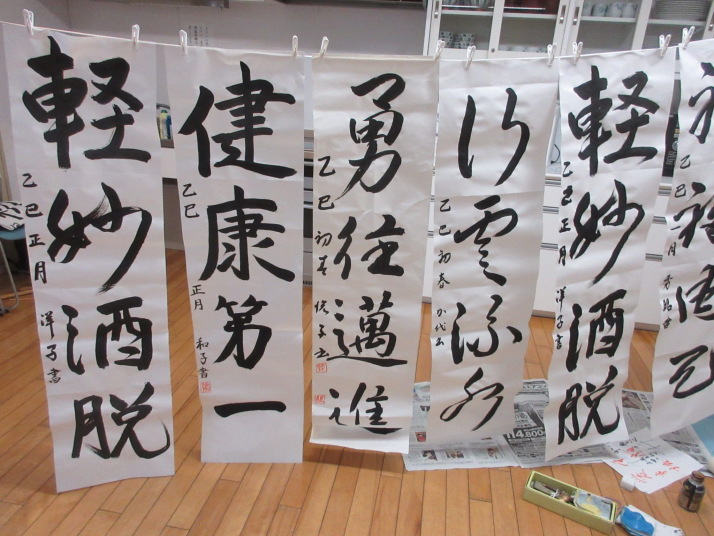 軽妙酒脱
乙巳正月
洋子書
健康第一
乙巳
正月
和子書
勇往邁進
乙巳初春
行雲流水
乙巳初春
かやの
軽妙酒脱
乙巳正月
洋子書
乙巳一月